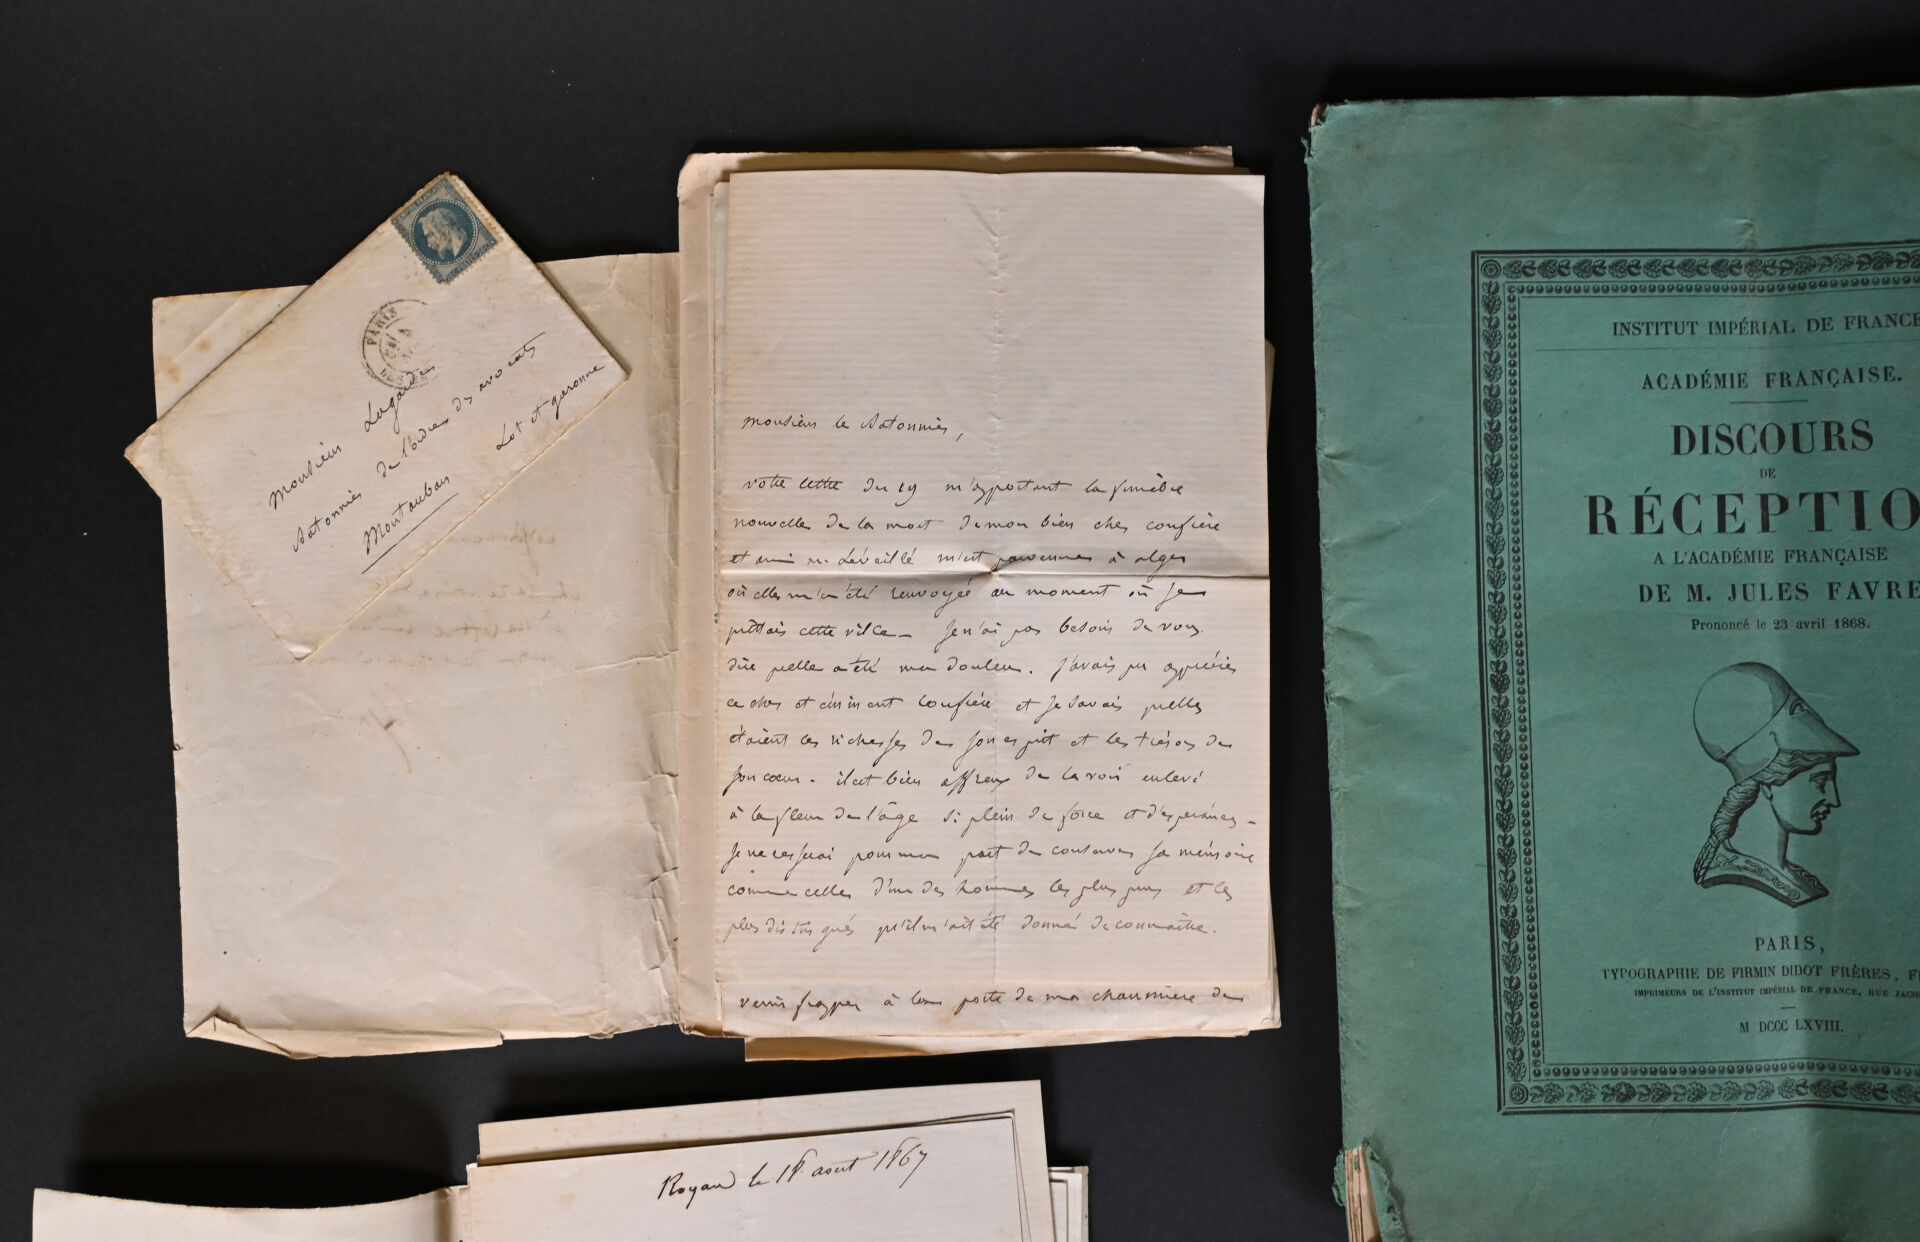 EMPIRE FRANC
PARIS
Monsieur Lagarde
Batonnier de l'ordre des avocats
Montauban
Lot et garonne
monsieur le Batonnier,
votre lettre du 19 m'apportant la funèbre
nouvelle de la mort de mon bien cher confrère
et ami m. Léveillé m'est parvenue à alger
où elle m'a été renvoyée au moment où je
quittais cette ville – je n'ai pas besoin de vous
dire quelle a été ma douleur. j'avais pu apprécier
ce cher et éminent confrère et je savais quelles
étaient les richesses de son esprit et les trésors de
son cœur. il est bien affreux de le voir enlevé
à la fleur de l'âge si plein de force et d'espérances –
je ne cesserai pour ma part de conserver sa mémoire
comme celle d'un des hommes les plus purs et les
plus distingués qu'il m'ait été donné de connaître.
venir frapper à la porte de ma chaumière de
Royan le 18 aout 1867
INSTITUT IMPÉRIAL DE FRANCE
ACADÉMIE FRANÇAISE.
DISCOURS
DE
RÉCEPTIO
A L'ACADÉMIE FRANÇAISE
DE M. JULES FAVRE
Prononcé le 23 avril 1868.
PARIS,
TYPOGRAPHIE DE FIRMIN DIDOT FRÈRES, FI
IMPRIMEURS DE L'INSTITUT IMPÉRIAL DE FRANCE, RUE JACO
M DCCC LXVIII.